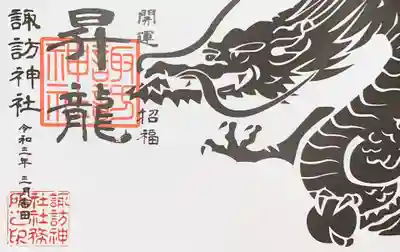 開運 招福
昇龍
諏訪
神社
令和二年 三月吉日
諏訪神社
諏訪神
社社務
所之印